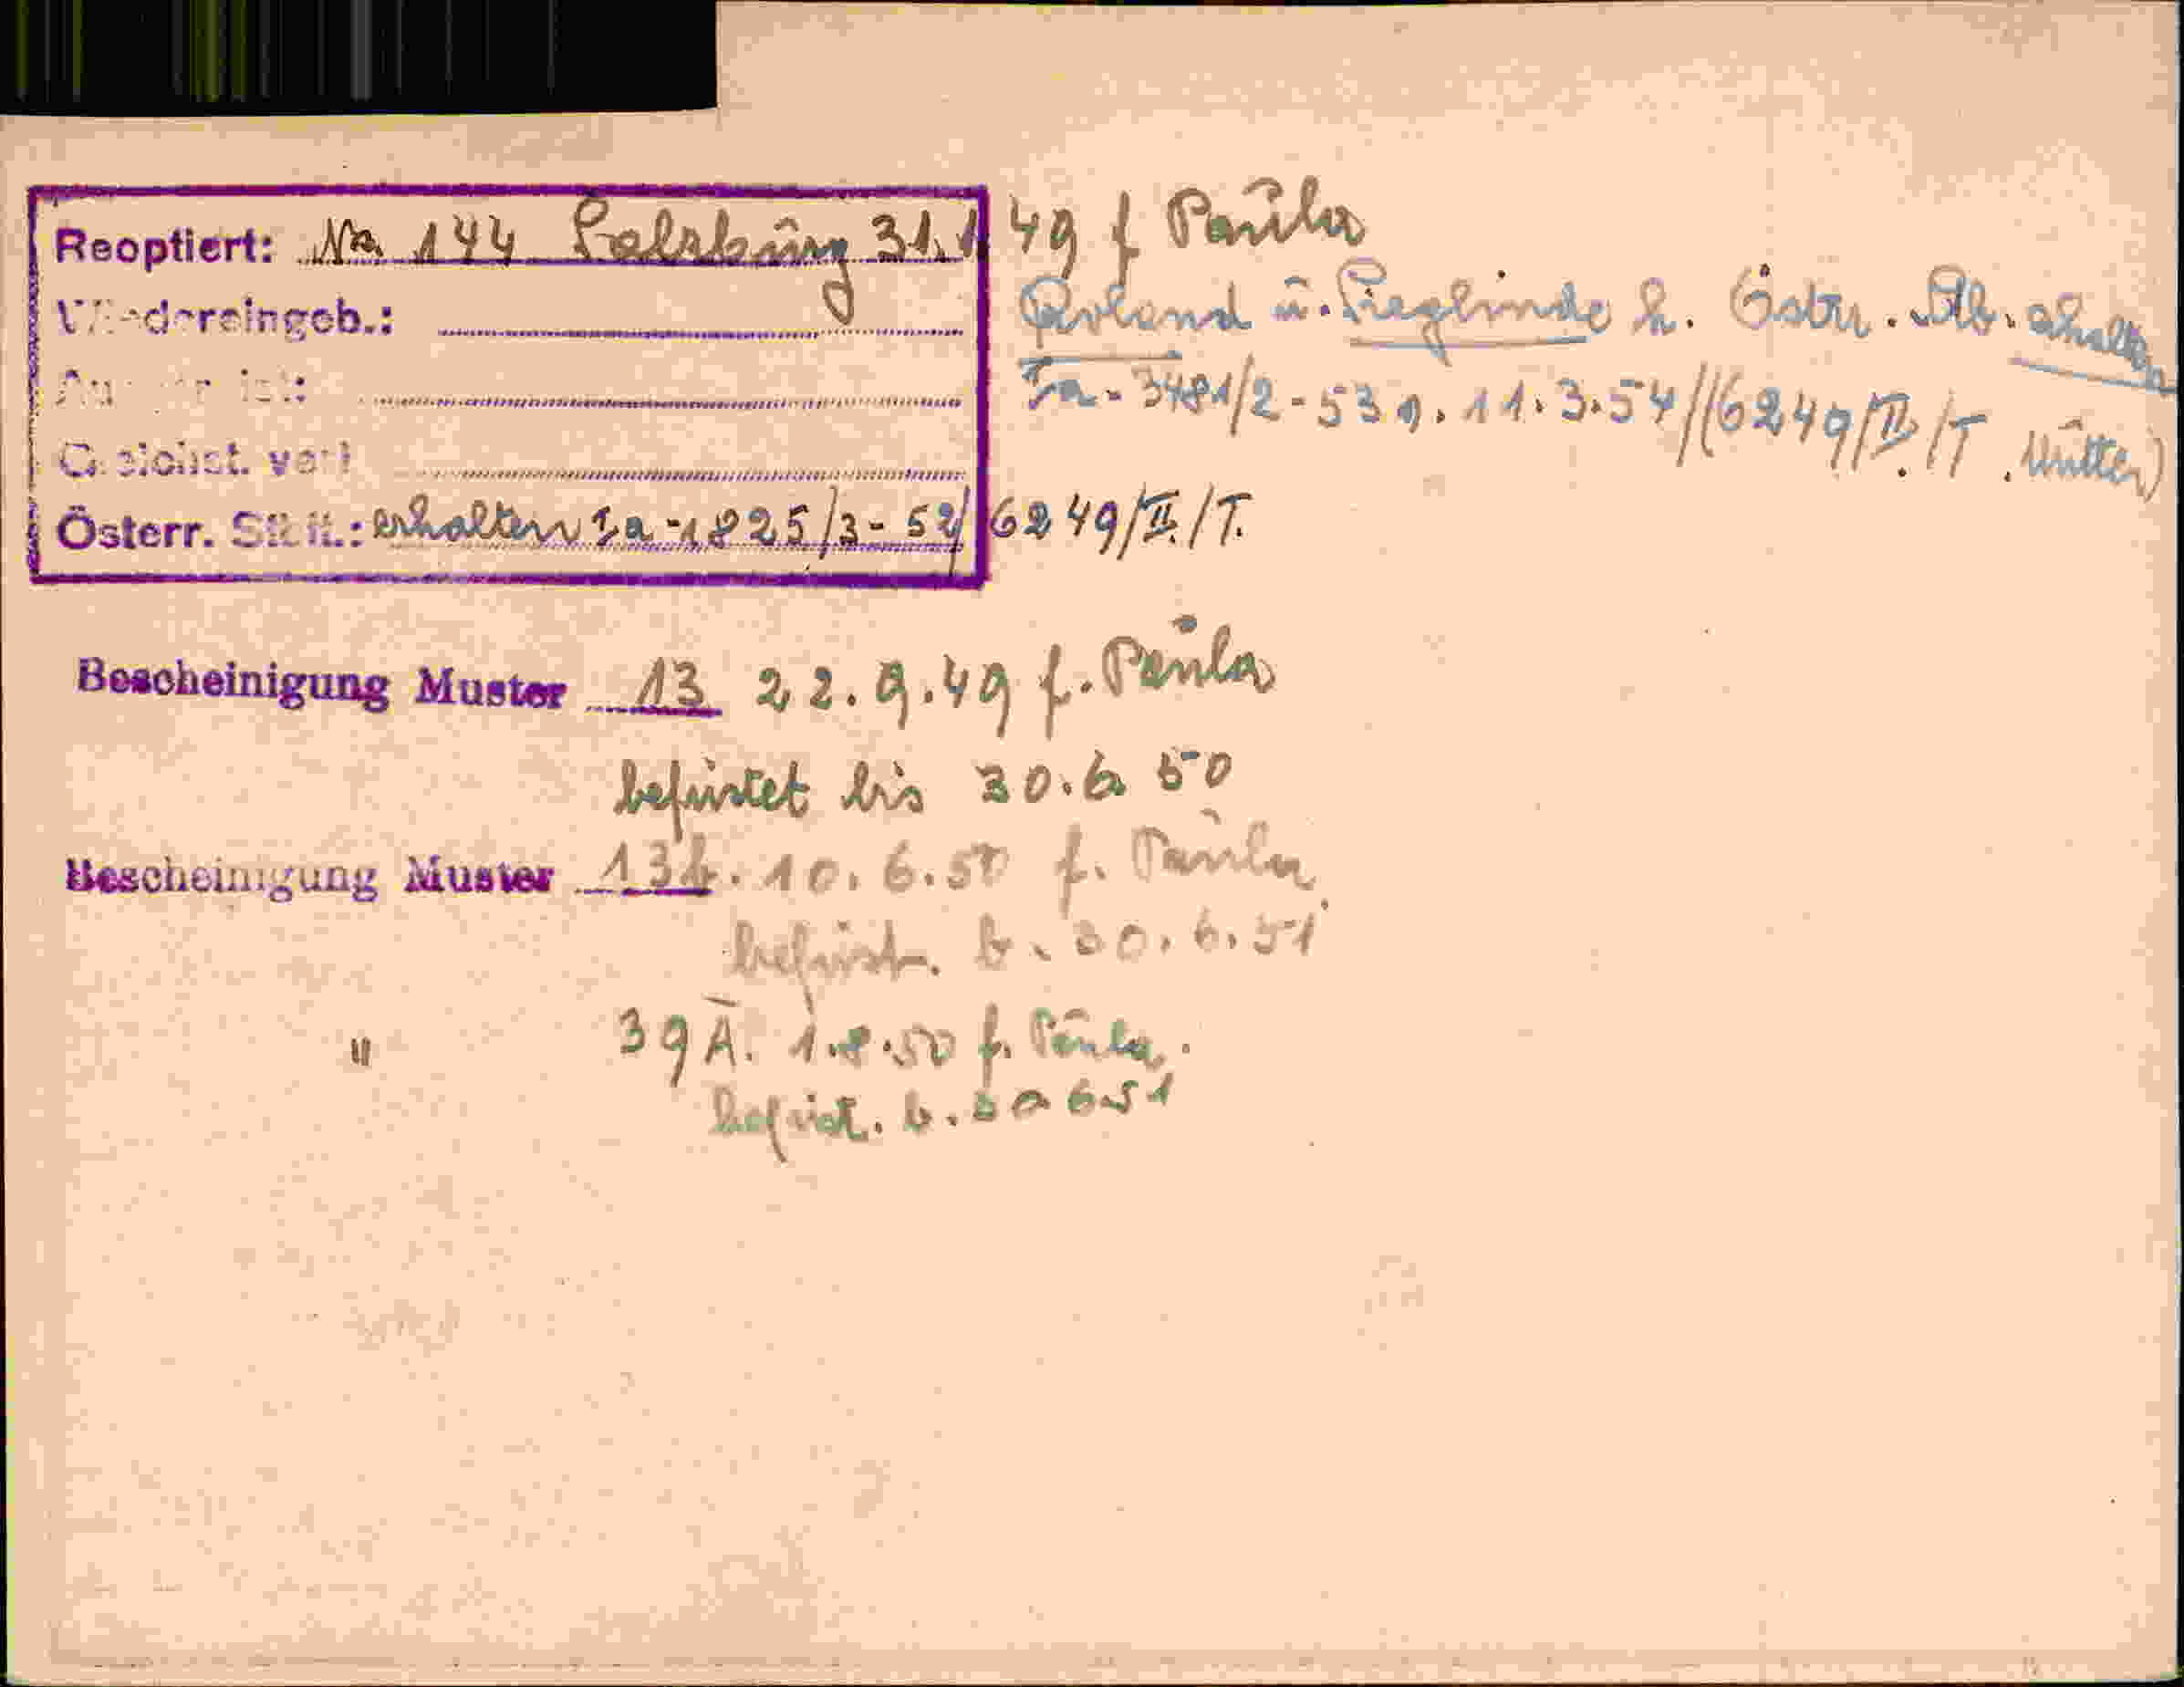 Reoptiert: No 144 Salzburg 31.1 49 f Paula
Wiedereingeb.:
Roland u. Sieglinde h. Östr. Stb. erhalten
Ia-3481/2-53 v. 11.3.54//(6249/II./T. Mutter)
Österr. Stb.: erhalten Ia-1825/3-52/6249/II./T.
Bescheinigung Muster 13 22.9.49 f. Paula
befristet bis 30.6 50
Bescheinigung Muster 13b. 10.6.50 f. Paula
befrist. b. 30.6.51
" 39A. 1.8.50 f. Paula.
befrist. b. 30 6.51